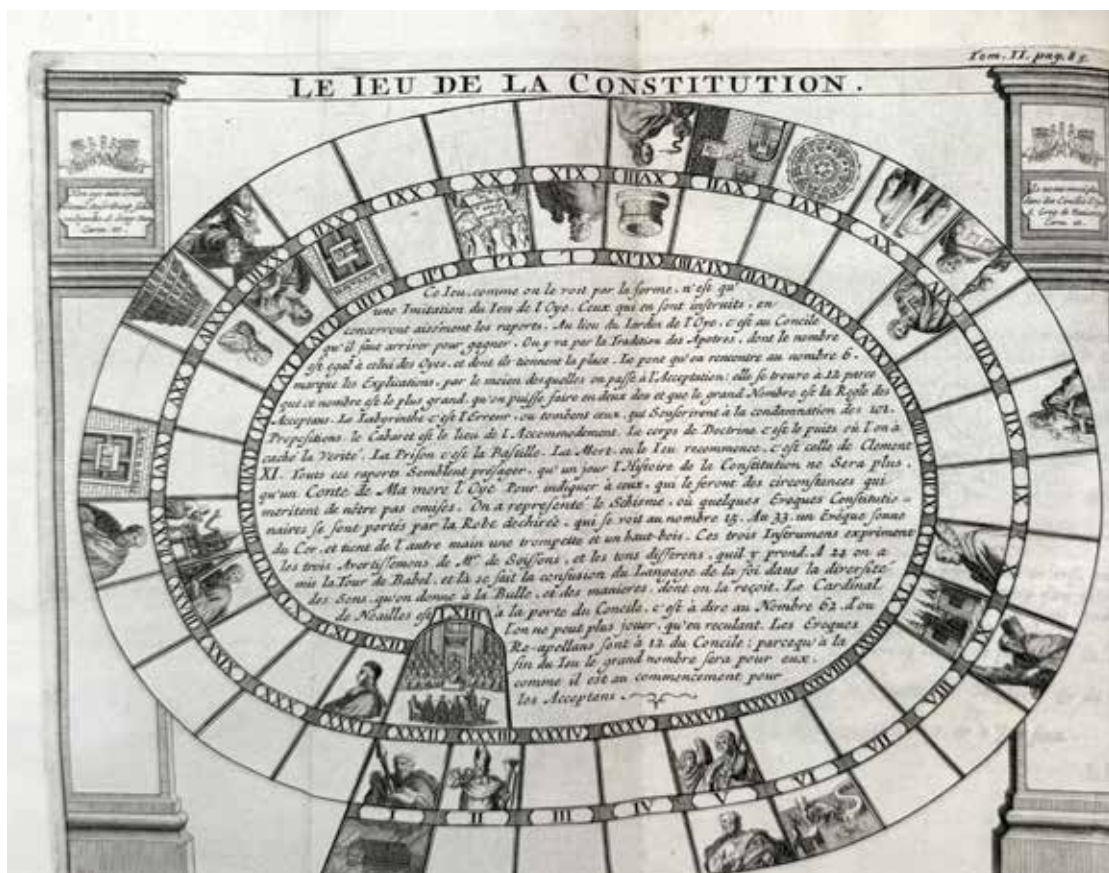 Tom. II. pag. 89.
LE IEU DE LA CONSTITUTION.
Ce Ieu, comme on le voit par la forme, n'est qu'
une Imitation du Ieu de l'Oye. Ceux qui en sont instruits, en
concevront aisément les raports. Au lieu du Iardin de l'Oye, c'est au Concile
qu'il faut arriver pour gagner. On y va par la Tradition des Apotres, dont le nombre
est egal à celui des Oyes, et dont ils tiennent la place. Le pont qu'on rencontre au nombre 6.
marque les Explications, par le moien desquelles on passe à l'Acceptation: elle se trouve à 12 parce
que ce nombre est le plus grand, qu'on puisse faire en deux dés et que le grand Nombre est la Regle des
Acceptans. Le Labyrinthe c'est l'Erreur, ou tombent ceux, qui Souscrivent à la condamnation des 101.
Propositions. le Cabaret est le lieu de l'Accommodement. Le corps de Doctrine c'est le puits où l'on à
caché la Verité. La Prison c'est la Bastille. La Mort, ou le Ieu recommence, c'est celle de Clement
XI. Touts ces raports Semblent présager, qu'un jour l'Histoire de la Constitution ne Sera plus,
qu'un Conte de Ma mere l'Oye Pour indiquer à ceux, qui le feront des circonstances qui
meritent de n'être pas omises. On a representé le Schisme, où quelques Eveques Constitutio=
naires se sont portés par la Robe dechirée, qui se voit au nombre 15. Au 33. un Evéque sonne
du Cor, et tient de l'autre main une trompette et un haut-bois. Ces trois Instrumens expriment
les trois Avertissemens de Mr. de Soissons, et les tons differens, quil y prend. A 24 on a
mis la Tour de Babel, et là se fait la confusion du Language de la foi dans la diversité
des Sens, qu'on donne à la Bulle, et des manieres, dont on la reçoit. Le Cardinal
de Noailles est à la porte du Concile, c'est à dire au Nombre 62. d'ou
l'on ne peut plus jouer, qu'en reculant. Les Eveques
Re-apellans sont à 12 du Concile; parcequ'à la
fin du Ieu le grand nombre sera pour eux,
comme il est au commencement pour
les Acceptans
I
II
III
IV
V
VI
VII
VIII
IX
XI
XII
XIII
XIV
XV
XVI
XVII
XVIII
XIX
XX
XXI
XXIX
XXX
XXXI
XXXII
XXXIII
XXXIV
XXXV
XXXVI
XXXVII
XXXVIII
LXI
LXII
LXIII